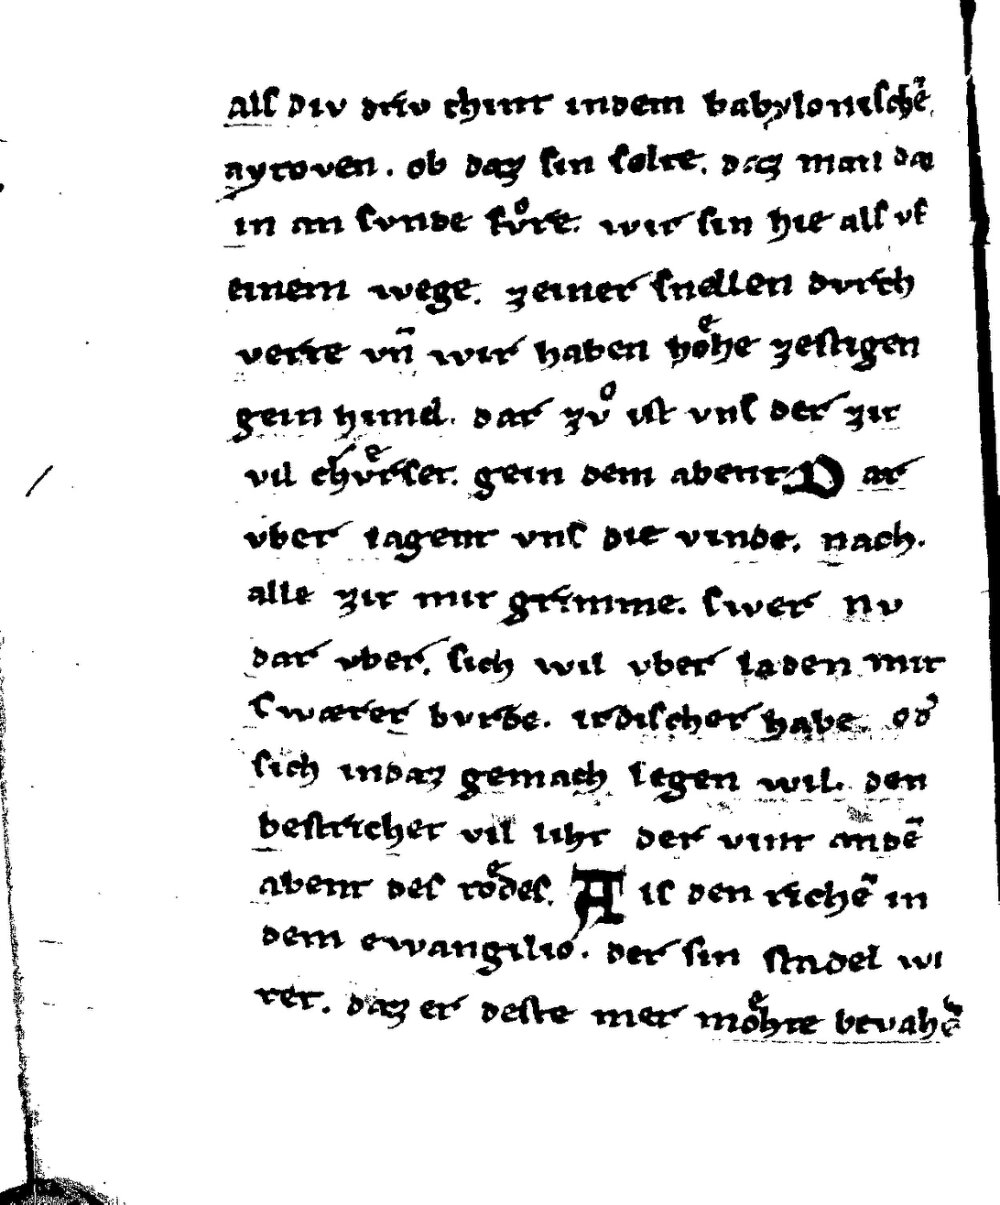 alſ div driv chint indem babẏloniſchē
aytoven. ob daz ſin ſolte. daz man da
in an ſvnde fvͦre. wir ſin hie alſ vf
einem wege. zeiner ſnellen dvrch
verte vn̄ wir haben hoͤhe zeſtigen
gein himel. dar zvͦ iſt vnſ der zit
vil chvͤrſer. gein dem abent. Dar
vber lagent vnſ die vinde. nach.
alle zit mit grimme. ſwer nv
dar vber. ſich wil vber laden mit
ſwærer bvrde. irdiſcher habe. od̾
ſich indaz gemach legen wil. den
beſtrichet vil liht der vint andē
abent deſ toͤdeſ. Alſ den richē in
dem ewangilio. der ſin ſtadel wi
ter. daz er deſte mer moͤhte bevahē